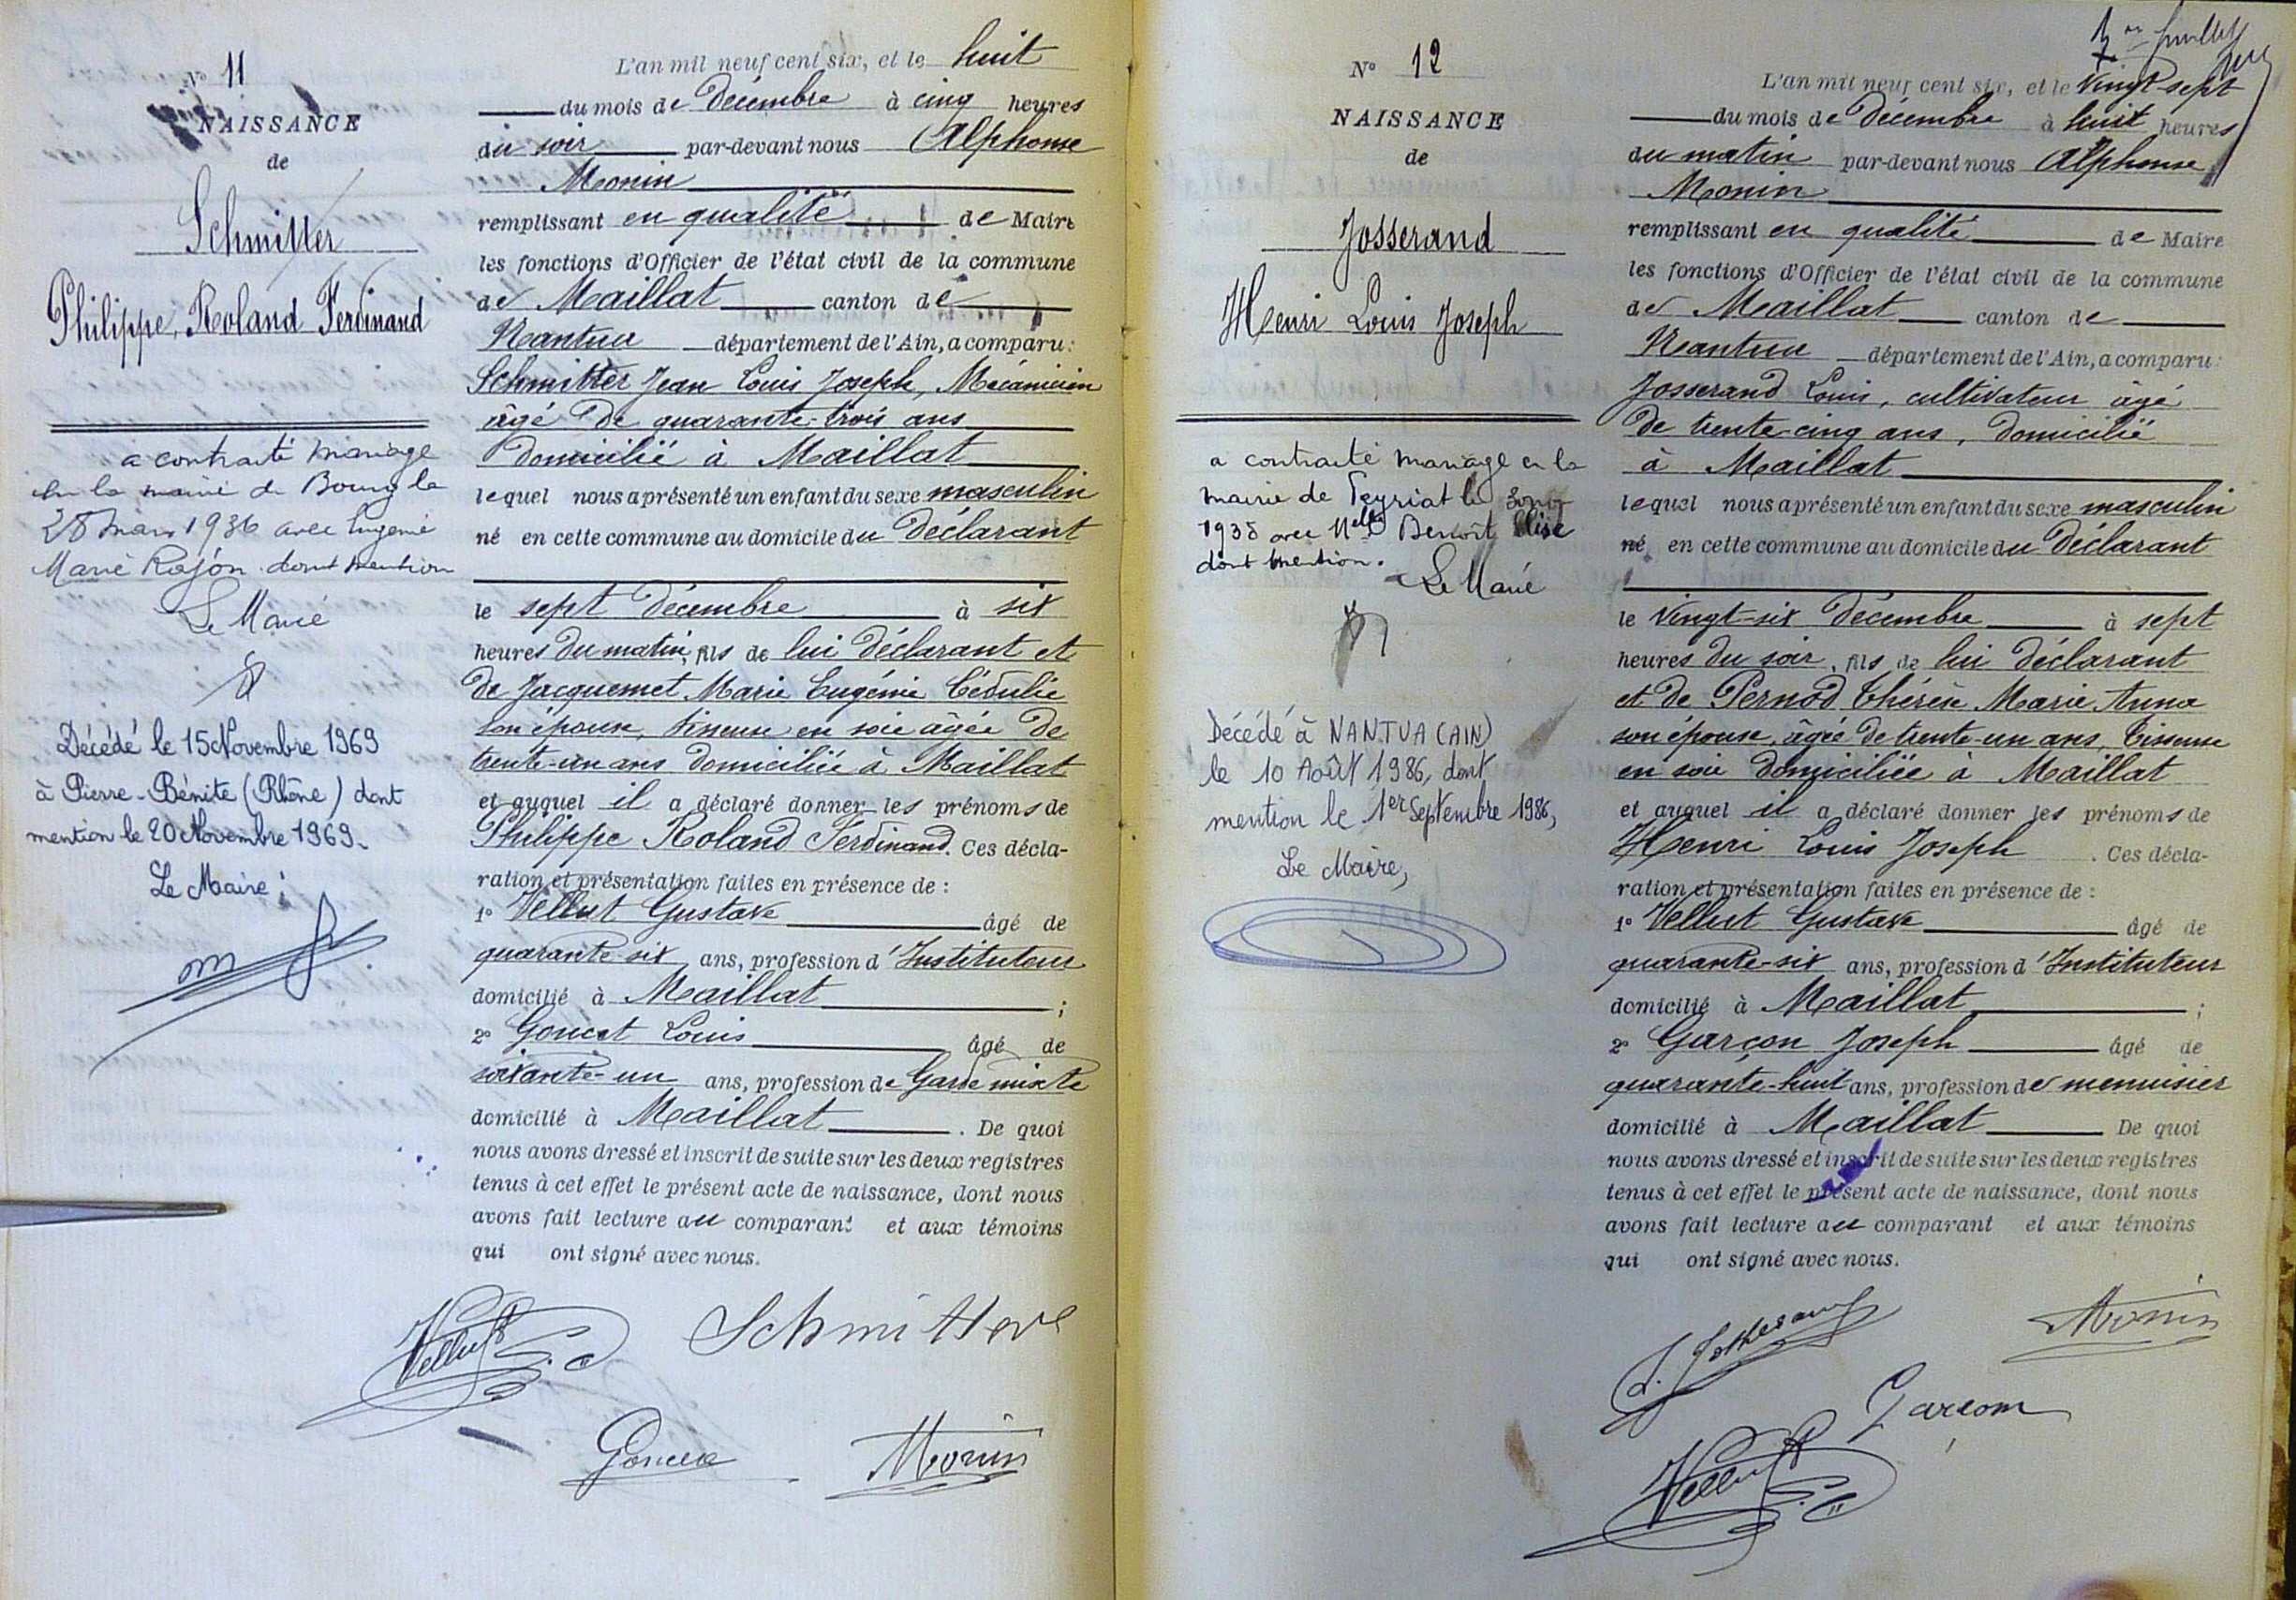 N° 11
NAISSANCE
de
Schmitter
Philippe, Roland Ferdinand
a contracté mariage
en la mairie de Bourg le
28 mars 1936 avec Eugénie
Marie Rojon dont mention
Le Maire
Décédé le 15 Novembre 1969
à Pierre-Bénite (Rhône) dont
mention le 20 Novembre 1969.
Le Maire :
L'an mil neuf cent six, et le huit
du mois de Décembre à cinq heures
du soir par-devant nous Alphonse
Monin
remplissant en qualité de Maire
les fonctions d'Officier de l'état civil de la commune
de Maillat canton de
Nantua département de l'Ain, a comparu :
Schmitter Jean Louis Joseph, Mécanicien
âgé de quarante-trois ans
domicilié à Maillat
lequel nous a présenté un enfant du sexe masculin
né en cette commune au domicile du déclarant
le sept décembre à six
heures du matin, fils de lui déclarant et
de Jacquemet Marie Eugénie Cédulie
son épouse, tisseuse en soie âgée de
trente-un ans domiciliée à Maillat
et auquel il a déclaré donner les prénoms de
Philippe Roland Ferdinand. Ces décla-
ration et présentation faites en présence de :
1° Vellut Gustave âgé de
quarante-six ans, profession d'Instituteur
domicilié à Maillat ;
2° Goncet Louis âgé de
soixante-un ans, profession de Garde mixte
domicilié à Maillat . De quoi
nous avons dressé et inscrit de suite sur les deux registres
tenus à cet effet le présent acte de naissance, dont nous
avons fait lecture au comparant et aux témoins
qui ont signé avec nous.
Vellut Schmitter
Goncet Monin
N° 12
NAISSANCE
de
Josserand
Henri Louis Joseph
a contracté mariage en la
mairie de Peyriat le
1938 avec Melle Benoît Elise
dont mention.
Le Maire
Décédé à NANTUA (AIN)
le 10 Août 1986, dont
mention le 1er Septembre 1986,
Le Maire,
L'an mil neuf cent six, et le vingt-sept
du mois de Décembre à huit heures
du matin par-devant nous Alphonse
Monin
remplissant en qualité de Maire
les fonctions d'Officier de l'état civil de la commune
de Maillat canton de
Nantua département de l'Ain, a comparu :
Josserand Louis, cultivateur âgé
de trente-cinq ans, domicilié
à Maillat
lequel nous a présenté un enfant du sexe masculin
né en cette commune au domicile du déclarant
le vingt-six décembre à sept
heures du soir, fils de lui déclarant
et de Pernod Thérèse Marie Anna
son épouse, âgée de trente-un ans, tisseuse
en soie domiciliée à Maillat
et auquel il a déclaré donner les prénoms de
Henri Louis Joseph . Ces décla-
ration et présentation faites en présence de :
1° Vellut Gustave âgé de
quarante-six ans, profession d'Instituteur
domicilié à Maillat ;
2° Garçon Joseph âgé de
quarante-huit ans, profession de menuisier
domicilié à Maillat De quoi
nous avons dressé et inscrit de suite sur les deux registres
tenus à cet effet le présent acte de naissance, dont nous
avons fait lecture au comparant et aux témoins
qui ont signé avec nous.
Monin
Garcon
Vellut